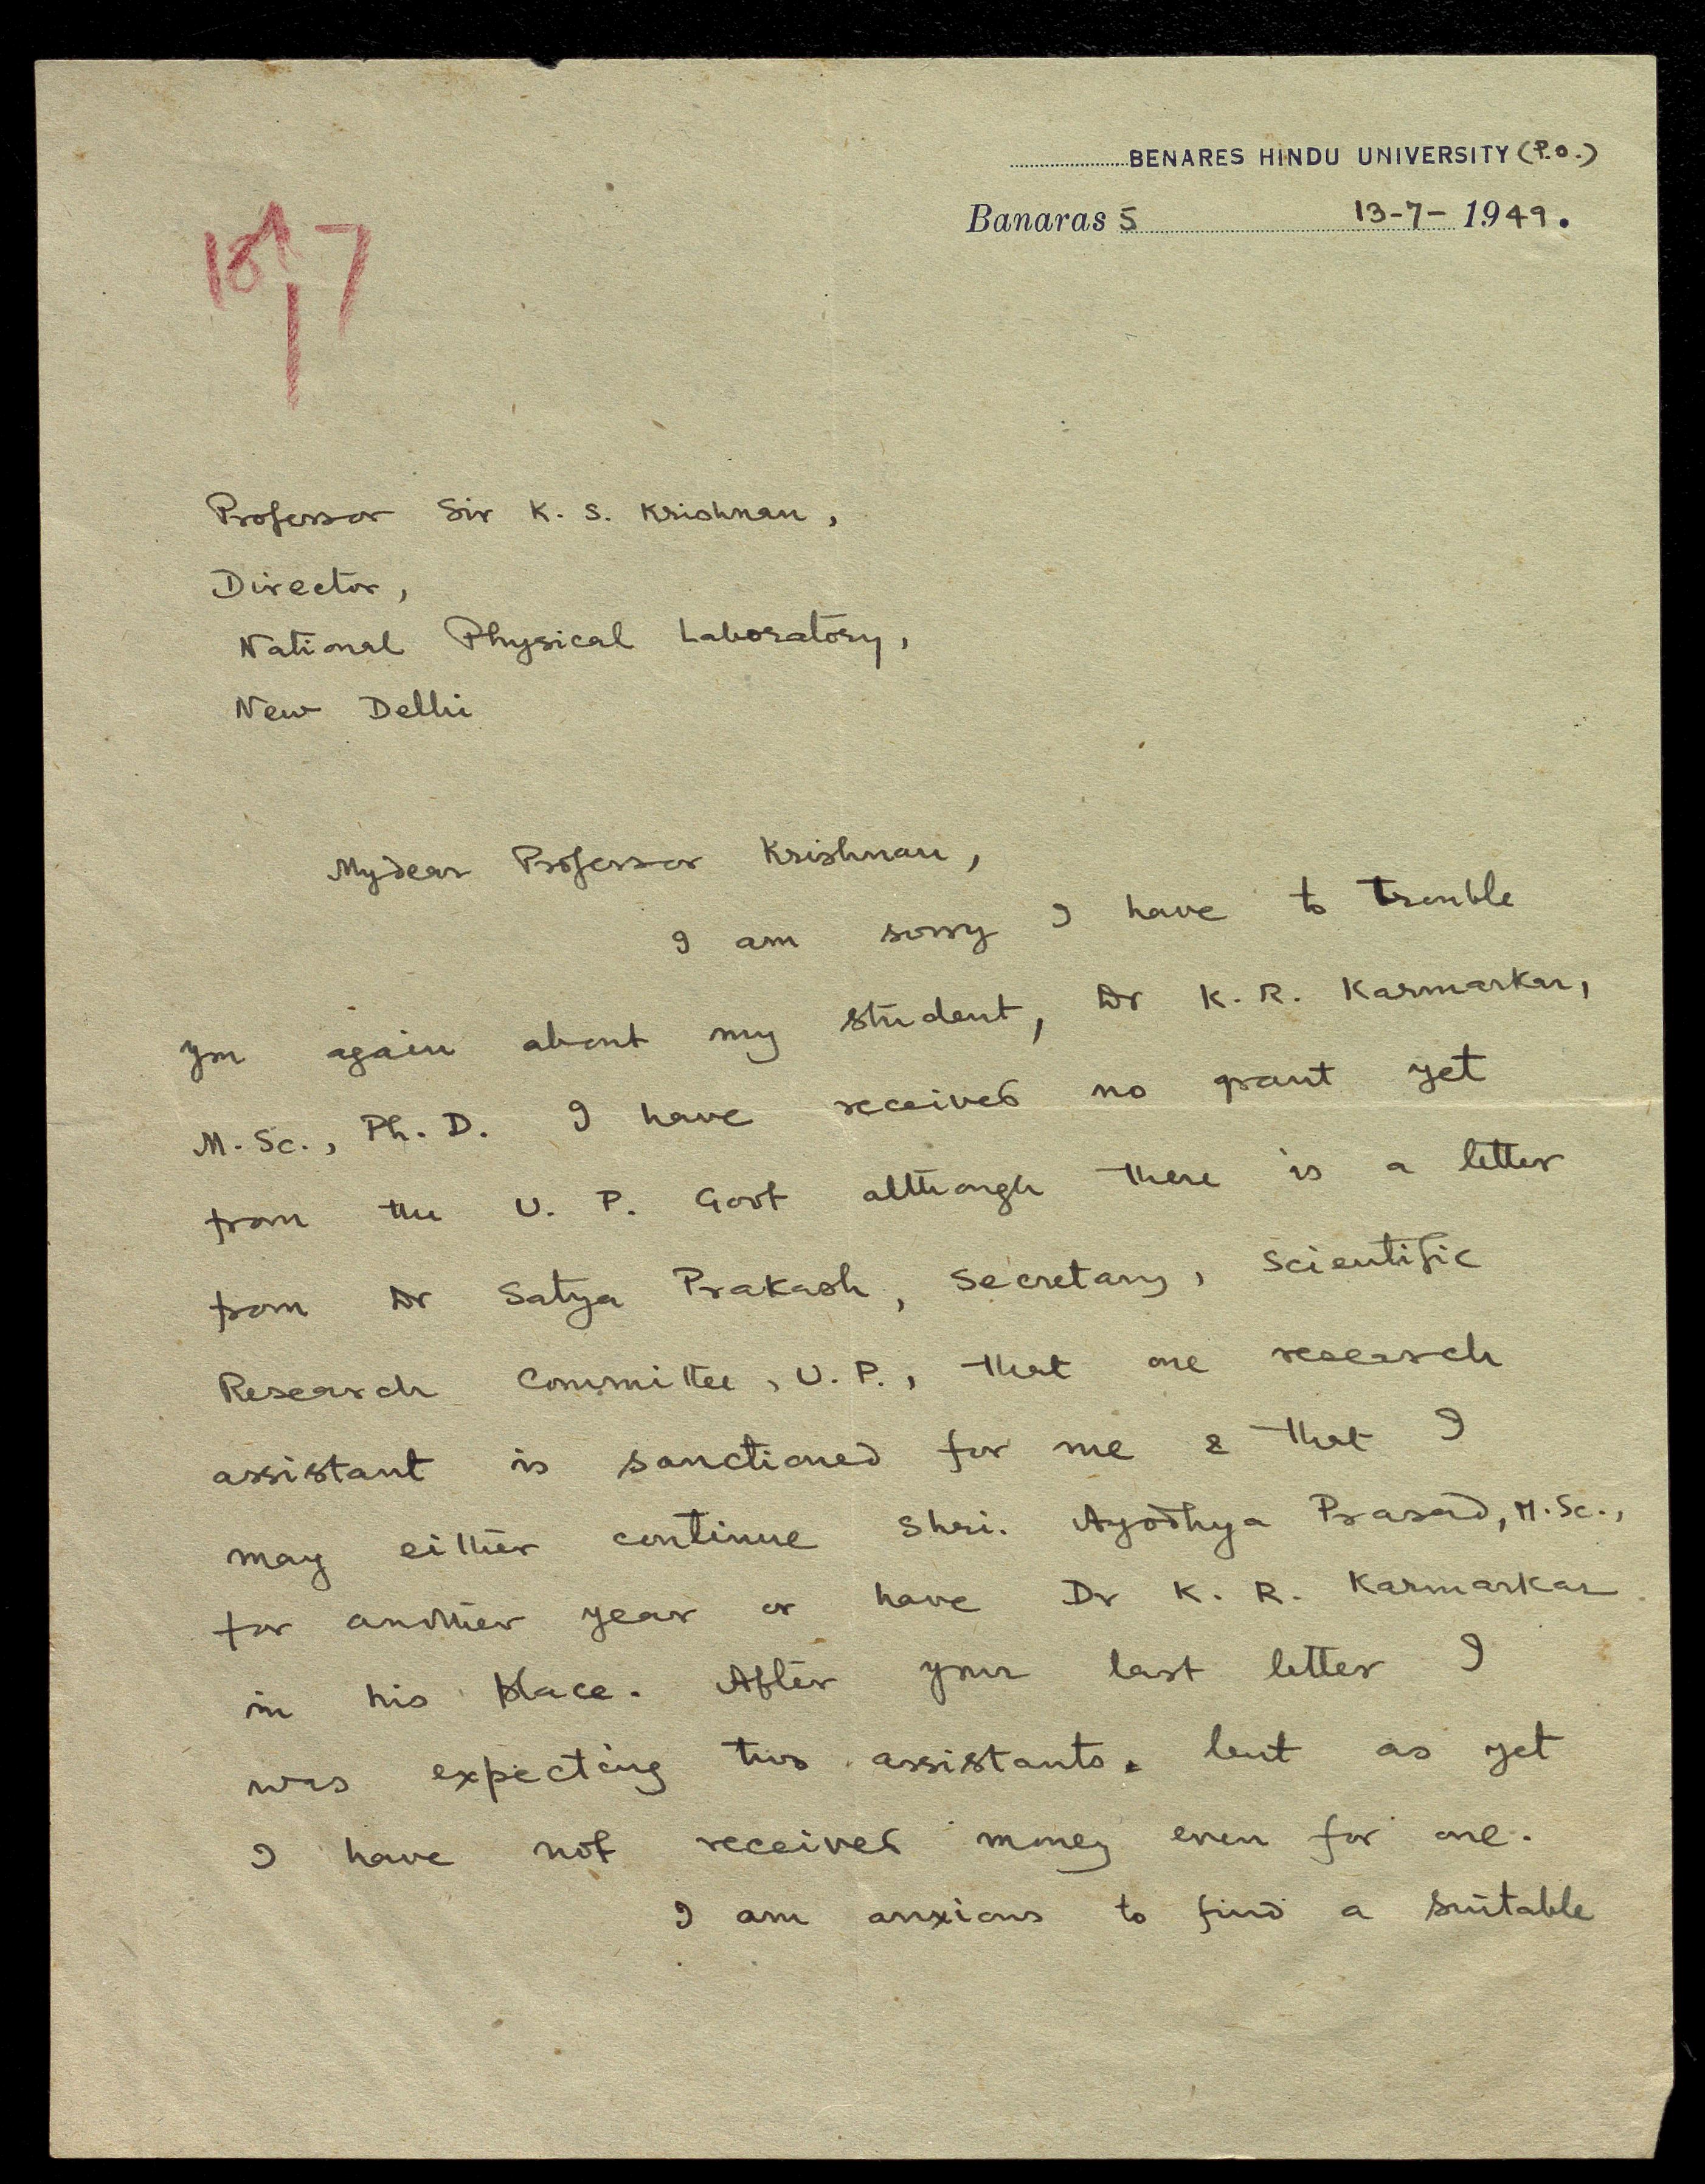 BENARES HINDU UNIVERSITY (P.O.)
Banaras 5 13-7- 1949.
Professor Sir K. S. Krishnan,
Director,
National Physical Laboratory,
New Delhi
My dear Professor Krishnan,
I am sorry I have to trouble
you again about my student, Dr K. R. Karmarkar,
M. Sc., Ph. D. I have received no grant yet
from the U. P. Govt although there is a letter
from Dr Satya Prakash, Secretary, Scientific
Research Committee, U. P., that one research
assistant is sanctioned for me & that I
may either continue Shri. Ayodhya Prasad, M. Sc.,
for another year or have Dr K. R. Karmarkar
in his place. After your last letter I
was expecting two assistants. but as yet
I have not received money even for one.
I am anxious to find a suitable